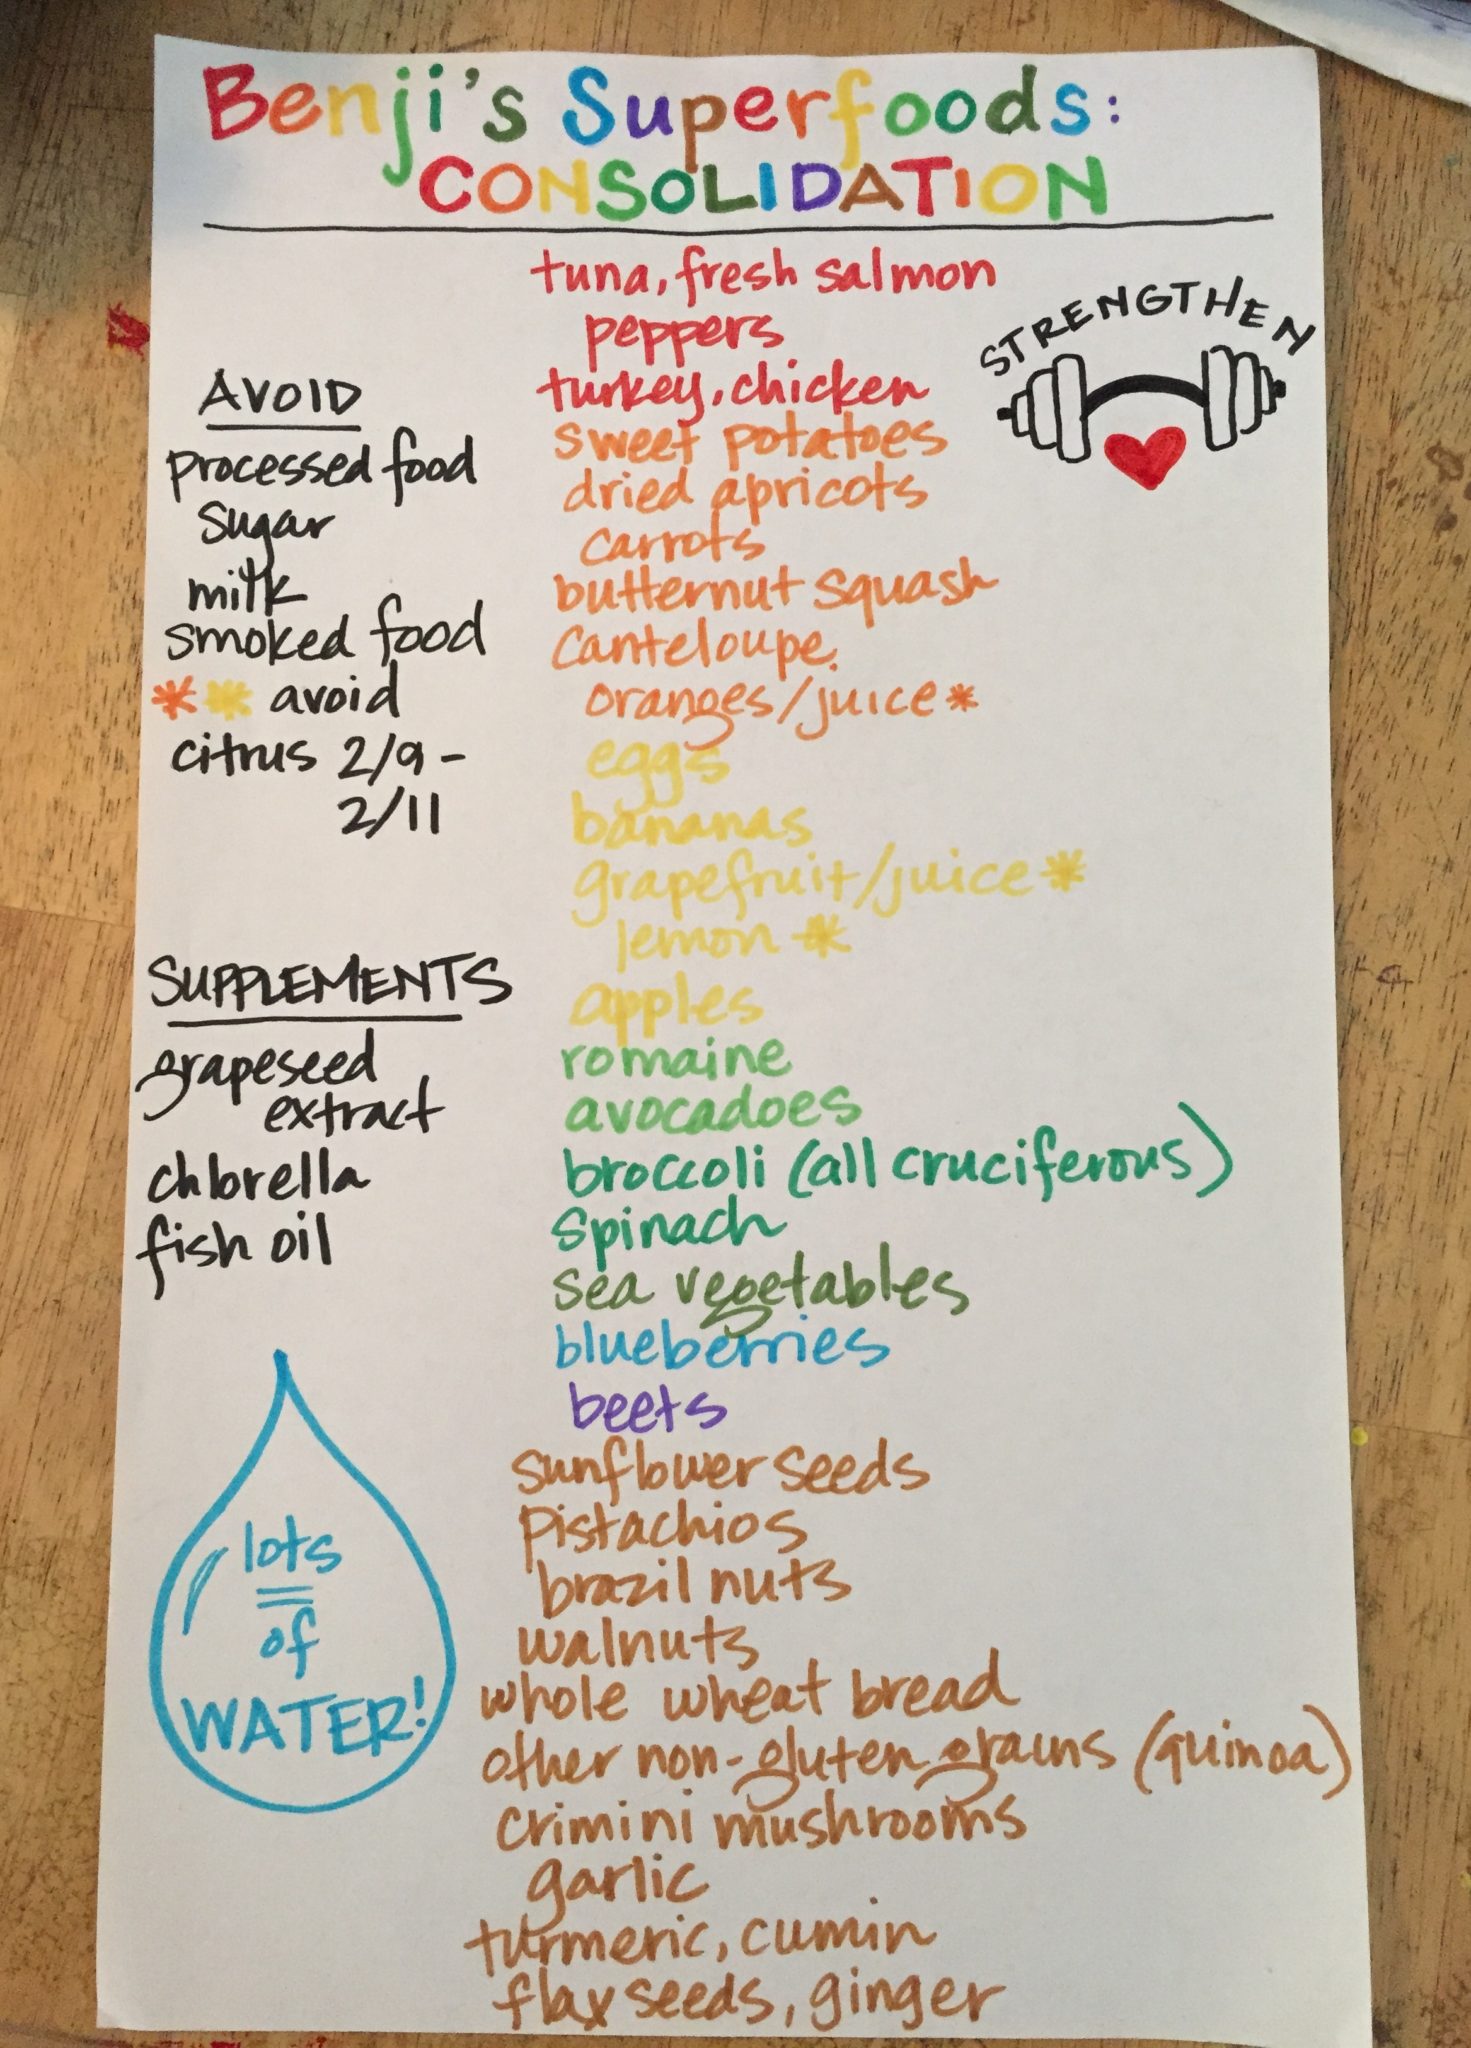 Benji's Superfoods:
CONSOLIDATION
tuna, fresh salmon
peppers
turkey, chicken
sweet potatoes
dried apricots
carrots
butternut squash
canteloupe
oranges/juice *
eggs
bananas
grapefruit/juice *
lemon *
apples
romaine
avocadoes
broccoli (all cruciferous)
spinach
sea vegetables
blueberries
beets
sunflower seeds
pistachios
brazil nuts
walnuts
whole wheat bread
other non-gluten grains (quinoa)
crimini mushrooms
garlic
turmeric, cumin
flax seeds, ginger
STRENGTHEN
AVOID
processed food
sugar
milk
smoked food
* * avoid
citrus 2/9 -
2/11
SUPPLEMENTS
grapeseed
extract
chlorella
fish oil
lots
of
WATER!